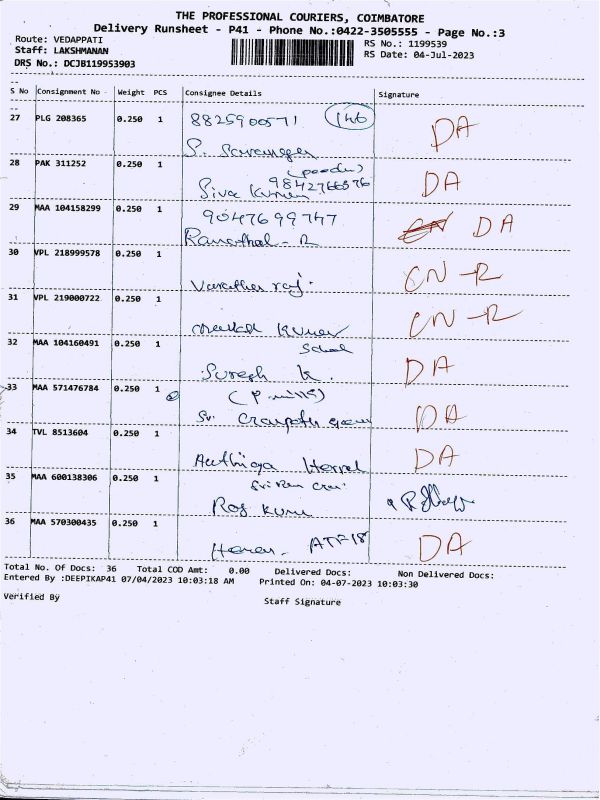 THE PROFESSIONAL COURIERS, COIMBATORE
Delivery Runsheet - P41 - Phone No.:0422-3505555 - Page No.:3
Route: VEDAPPATI
RS No.: 1199539
Staff: LAKSHMANAN
RS Date: 04-Jul-2023
DRS No.: DCJB119953903
S No Consignment No Weight PCS Consignee Details Signature
27 PLG 208365 0.250 1 8825900571 146
S. DA
28 PAK 311252 0.250 1
Siva Kumar 9842766576 DA
29 MAA 104158299 0.250 1 9047699747 DA
30 VPL 218999578 0.250 1
CN-R
31 VPL 219000722 0.250 1
Kumar CN-R
32 MAA 104160491 0.250 1
Suresh K. DA
33 MAA 571476784 0.250 1 (P. mills)
Sri DA
34 TVL 8513604 0.250 1
DA
35 MAA 600138306 0.250 1
Raj Kumar
36 MAA 570300435 0.250 1
DA
Total No. Of Docs: 36 Total COD Amt: 0.00 Delivered Docs: Non Delivered Docs:
Entered By :DEEPIKAP41 07/04/2023 10:03:18 AM Printed On: 04-07-2023 10:03:30
Verified By
Staff Signature